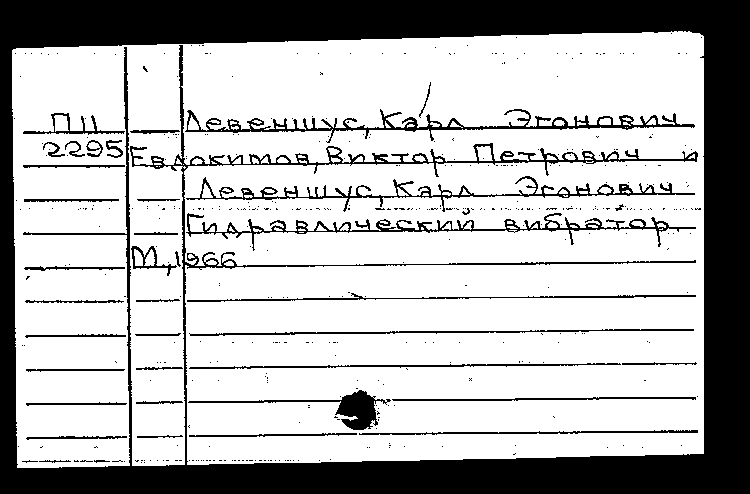 П11 Левеншус, Карл Эгонович
2295 Евдокимов, Виктор Петрович и
Левеншус, Карл Эгонович
Гидравлический вибратор.
М., 1966